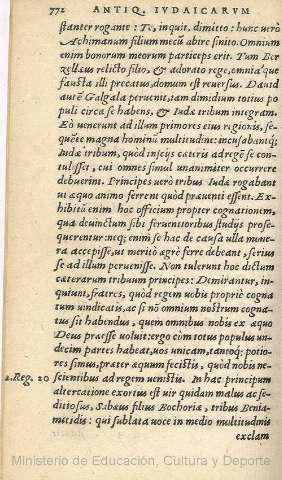 772 ANTIQ. IVDAICARVM
stanter rogante: Te, inquit, dimitto: hunc verò
Achimanum filium mecū abire sinito. Omnium
enim bonorum meorum particeps erit. Tum Ber
zellæus relicto filio, & adorato rege, omniáque
fausta illi precatus, domum est reuersus. Dauid
autē Galgala peruenit, iam dimidium totius po
puli circa se habens, & Iudæ tribum integram.
Eò venerunt ad illum primores eius regionis, se-
quēte magna hominū multitudine: incusabantq;
Iudæ tribum, quòd inscijs cæteris adregē se con-
tulisset, cui omnes simul vnanimiter occurrere
debuerint. Principes verò tribus Iudæ rogabant
ut æquo animo ferrent quòd præuenti essent. Ex-
hibitū enim hoc officium propter cognationem,
qua deuinctum sibi feruentioribus studijs prose-
querentur: neq; enim se hac de causa ulla mune-
ra accepisse, ut meritò ægrè ferre debeant, seriùs
se ad illum peruenisse. Non tulerunt hoc dictum
cæterarum tribuum principes: Demirantur, in-
quiunt, fratres, quòd regem uobis propriè cogna
tum vindicatis, ac si nō omnium nostrum cogna-
tus sit habendus, quem omnibus nobis ex æquo
Deus præesse voluit: ergo cùm totus populus un-
decim partes habeat, uos unicam, tantoq; potio-
res simus, præter æquum fecistis, quòd nobis ne-
2. Reg. 20 scientibus ad regem uenistis. In hac principum
altercatione exortus est uir quidam malus ac se-
ditiosus, Sabæus filius Bochoria, tribus Benia-
mitidis: qui sublata uoce in medio multitudinis
exclam
Ministerio de Educación, Cultura y Deporte